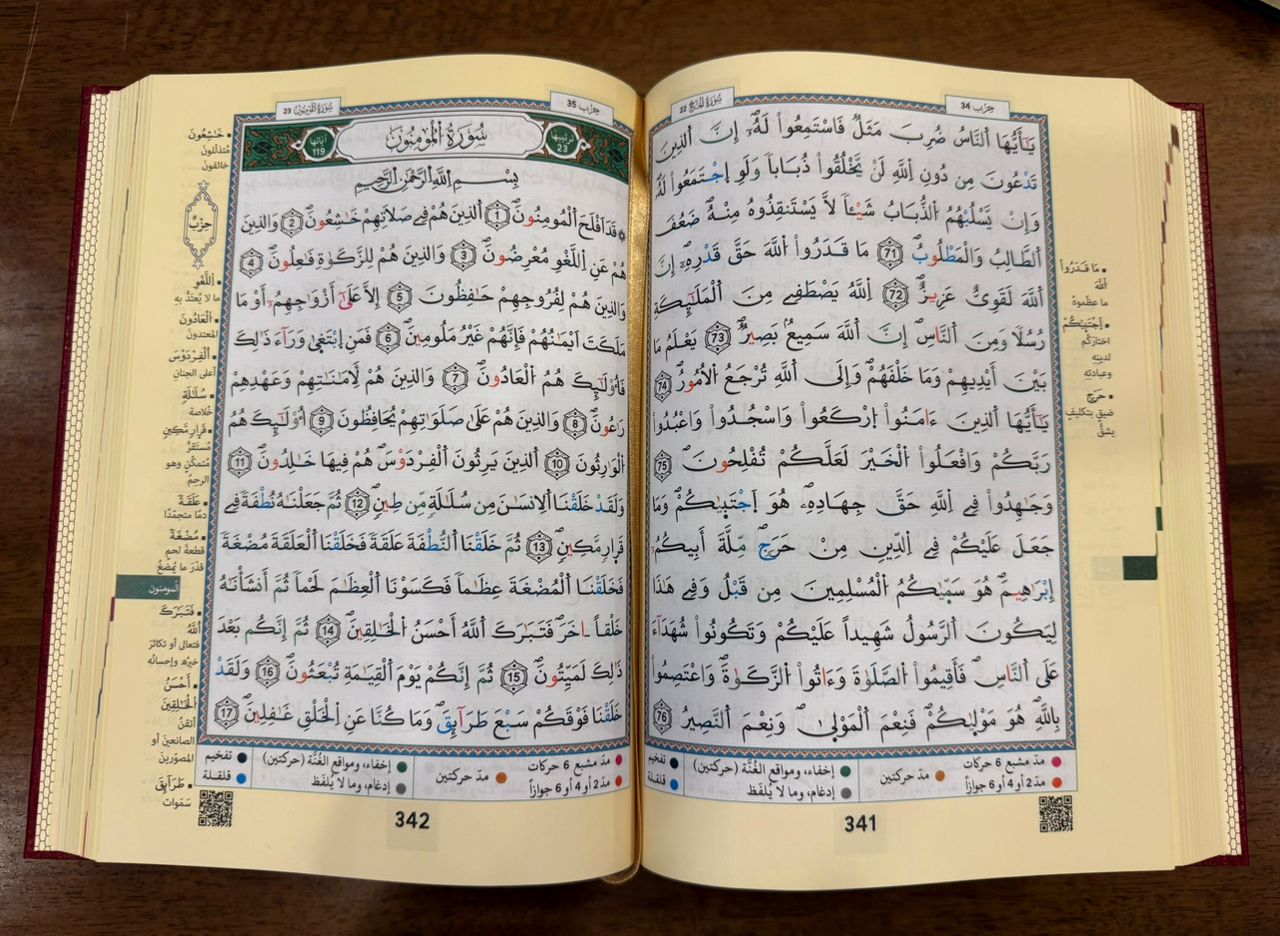 حِزْب 34
سُورَةُ الحَجِّ 22
يَٰٓأَيُّهَا اَ۬لنَّاسُ ضُرِبَ مَثَلٞ فَاسْتَمِعُواْ لَهُۥٓۖ إِنَّ اَ۬لذِينَ
تَدْعُونَ مِن دُونِ اِ۬للَّهِ لَنْ يَّخْلُقُواْ ذُبَاباٗ وَلَوِ اِ۪جْتَمَعُواْ لَهُۥۖ
وَإِنْ يَّسْلُبْهُمُ اُ۬لذُّبَابُ شَيْـٔاٗ لَّا يَسْتَنقِذُوهُ مِنْهُۖ ضَعُفَ
اَ۬لطَّالِبُ وَالْمَطْلُوبُۖ (71) مَا قَدَرُواْ اُ۬للَّهَ حَقَّ قَدْرِهِۦٓۖ إِنَّ
اَ۬للَّهَ لَقَوِيٌّ عَزِيزٌۖ (72) اِ۬للَّهُ يَصْطَفِے مِنَ اَ۬لْمَلَٰٓئِكَةِ
رُسُلاٗ وَمِنَ اَ۬لنَّاسِۖ إِنَّ اَ۬للَّهَ سَمِيعُۢ بَصِيرٞۖ (73) يَعْلَمُ مَا
بَيْنَ أَيْدِيهِمْ وَمَا خَلْفَهُمْۖ وَإِلَى اَ۬للَّهِ تُرْجَعُ اُ۬لْأُمُورُۖ (74)
يَٰٓأَيُّهَا اَ۬لذِينَ ءَامَنُواْ اُ۪رْكَعُواْ وَاسْجُدُواْ وَاعْبُدُواْ
رَبَّكُمْ وَافْعَلُواْ اُ۬لْخَيْرَ لَعَلَّكُمْ تُفْلِحُونَۖ (75)
وَجَٰهِدُواْ فِے اِ۬للَّهِ حَقَّ جِهَادِهِۦۖ هُوَ اَ۪جْتَب۪يٰكُمْۖ وَمَا
جَعَلَ عَلَيْكُمْ فِے اِ۬لدِّينِ مِنْ حَرَجٖۖ مِّلَّةَ أَبِيكُمُۥٓ
إِبْرَٰهِيمَۖ هُوَ سَمّ۪يٰكُمُ اُ۬لْمُسْلِمِينَ مِن قَبْلُ وَفِے هَٰذَا
لِيَكُونَ اَ۬لرَّسُولُ شَهِيداً عَلَيْكُمْ وَتَكُونُواْ شُهَدَآءَ
عَلَى اَ۬لنَّاسِۖ فَأَقِيمُواْ اُ۬لصَّلَوٰةَ وَءَاتُواْ اُ۬لزَّكَوٰةَ وَاعْتَصِمُواْ
بِاللَّهِ هُوَ مَوْل۪يٰكُمْۖ فَنِعْمَ اَ۬لْمَوْل۪يٰ وَنِعْمَ اَ۬لنَّصِيرُۖ (76)
مَا قَدَرُواْ
اُللَّهَ
ما عظّموهُ
اِجْتَبيٰكُمْ
اختارَكُم
لدينِهِ
وعبادتِهِ
حَرَجٍ
ضيقٍ بتكليفٍ
يشقُّ
مدّ مشبع 6 حركات
مدّ 2 أو 4 أو 6 جوازاً
مدّ حركتين
إخفاء، ومواقع الغُنَّة (حركتين)
إدغام، وما لا يُلفَظ
تفخيم
قلقلة
341
حِزْب 35
سُورَةُ المُومِنُونَ 23
ترتيبها 23
سُورَةُ اُ۬لْمُومِنُونَ
آياتها 119
بِسْمِ اِ۬للَّهِ اِ۬لرَّحْمَٰنِ اِ۬لرَّحِيمِ
۞ قَدَ اَفْلَحَ اَ۬لْمُومِنُونَۖ (1) اَ۬لذِينَ هُمْ فِے صَلَاتِهِمْ خَٰشِعُونَۖ (2) وَالذِينَ
هُمْ عَنِ اِ۬للَّغْوِ مُعْرِضُونَۖ (3) وَالذِينَ هُمْ لِلزَّكَوٰةِ فَٰعِلُونَۖ (4)
وَالذِينَ هُمْ لِفُرُوجِهِمْ حَٰفِظُونَ (5) إِلَّا عَلَىٰٓ أَزْوَٰجِهِمُۥٓ أَوْ مَا
مَلَكَتَ اَيْمَٰنُهُمْ فَإِنَّهُمْ غَيْرُ مَلُومِينَۖ (6) فَمَنِ اِ۪بْتَغ۪يٰ وَرَآءَ ذَٰلِكَ
فَأُوْلَٰٓئِكَ هُمُ اُ۬لْعَادُونَۖ (7) وَالذِينَ هُمْ لِأَمَٰنَٰتِهِمْ وَعَهْدِهِمْ
رَٰعُونَۖ (8) وَالذِينَ هُمْ عَلَىٰ صَلَوَٰتِهِمْ يُحَافِظُونَۖ (9) أُوْلَٰٓئِكَ هُمُ
اُ۬لْوَٰرِثُونَ (10) اَ۬لذِينَ يَرِثُونَ اَ۬لْفِرْدَوْسَۖ هُمْ فِيهَا خَٰلِدُونَۖ (11)
وَلَقَدْ خَلَقْنَا اَ۬لِانسَٰنَ مِن سُلَٰلَةٖ مِّن طِينٖۖ (12) ثُمَّ جَعَلْنَٰهُ نُطْفَةٗ فِے
قَر۪ارٖ مَّكِينٖۖ (13) ثُمَّ خَلَقْنَا اَ۬لنُّطْفَةَ عَلَقَةٗ فَخَلَقْنَا اَ۬لْعَلَقَةَ مُضْغَةٗ
فَخَلَقْنَا اَ۬لْمُضْغَةَ عِظَٰماٗ فَكَسَوْنَا اَ۬لْعِظَٰمَ لَحْماٗ ثُمَّ أَنشَأْنَٰهُ
خَلْقاً ـاخَرَۖ فَتَبَٰرَكَ اَ۬للَّهُ أَحْسَنُ اُ۬لْخَٰلِقِينَۖ (14) ثُمَّ إِنَّكُم بَعْدَ
ذَٰلِكَ لَمَيِّتُونَۖ (15) ثُمَّ إِنَّكُمْ يَوْمَ اَ۬لْقِيَٰمَةِ تُبْعَثُونَۖ (16) وَلَقَدْ
خَلَقْنَا فَوْقَكُمْ سَبْعَ طَرَآئِقَۖ وَمَا كُنَّا عَنِ اِ۬لْخَلْقِ غَٰفِلِينَۖ (17)
خَٰشِعُونَ
مُتذلّلونَ
خائفونَ
حِزْبٌ
اِللَّغْوِ
ما لا يُعْتَدُّ بِهِ
اُلْعَادُونَ
المعتدونَ
اَلْفِرْدَوْسَ
أعلى الجنانِ
سُلَٰلَةٍ
خُلاصةٍ
قَرارٍ مَّكِينٍ
مُستقرٍّ
مُتمكّنٍ وهو
الرحِمُ
عَلَقَةً
دمًا متجمّدًا
مُضْغَةً
قطعةَ لحمٍ
قدْرَ ما يُمضَغُ
المومنون
فَتَبَٰرَكَ
اَللَّهُ
فتعالى أو تكاثرَ
خيرُه وإحسانُه
أَحْسَنُ
اُلْخَٰلِقِينَ
أتقنُ
الصانعينَ أو
المصوّرينَ
طَرَآئِقَ
سَمٰواتٍ
مدّ مشبع 6 حركات
مدّ 2 أو 4 أو 6 جوازاً
مدّ حركتين
إخفاء، ومواقع الغُنَّة (حركتين)
إدغام، وما لا يُلفَظ
تفخيم
قلقلة
342